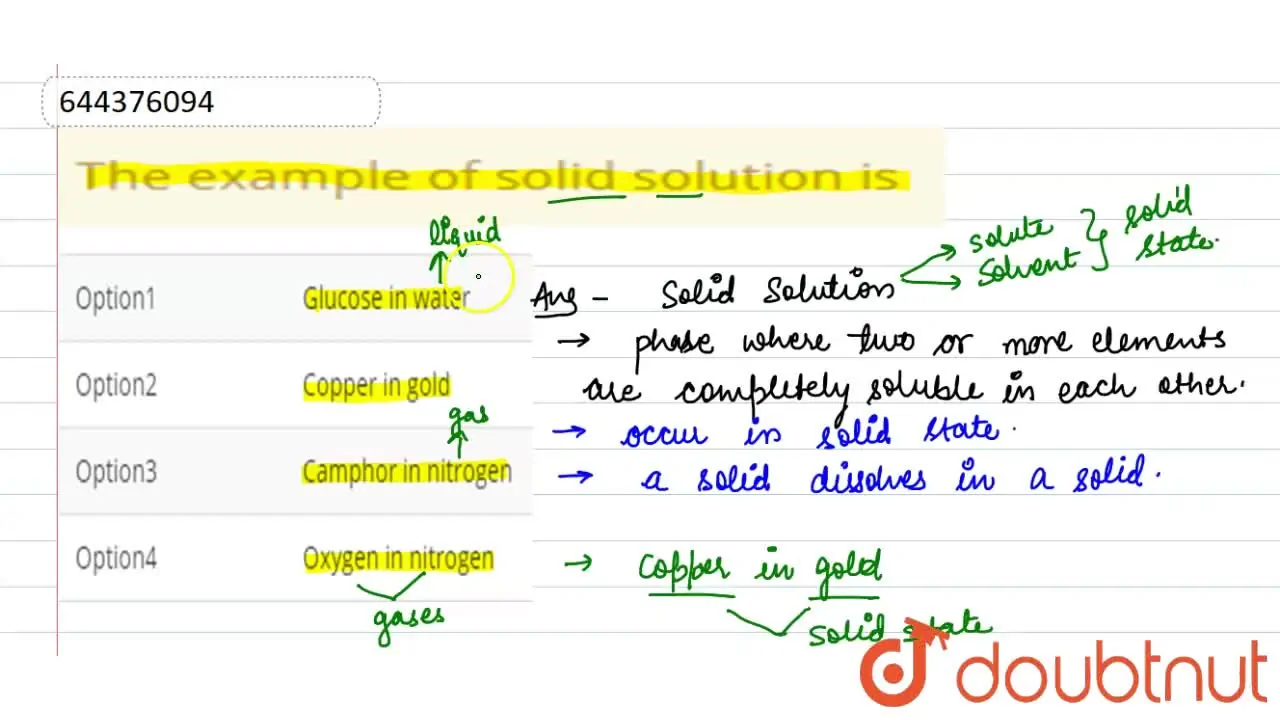 644376094
The example of solid solution is
liquid
Option1 Glucose in water
Option2 Copper in gold
gas
Option3 Camphor in nitrogen
Option4 Oxygen in nitrogen
gases
solute
solvent } solid state.
Ans - Solid Solution
→ phase where two or more elements
are completely soluble in each other.
→ occur in solid state.
→ a solid dissolves in a solid.
→ copper in gold
solid state
doubtnut